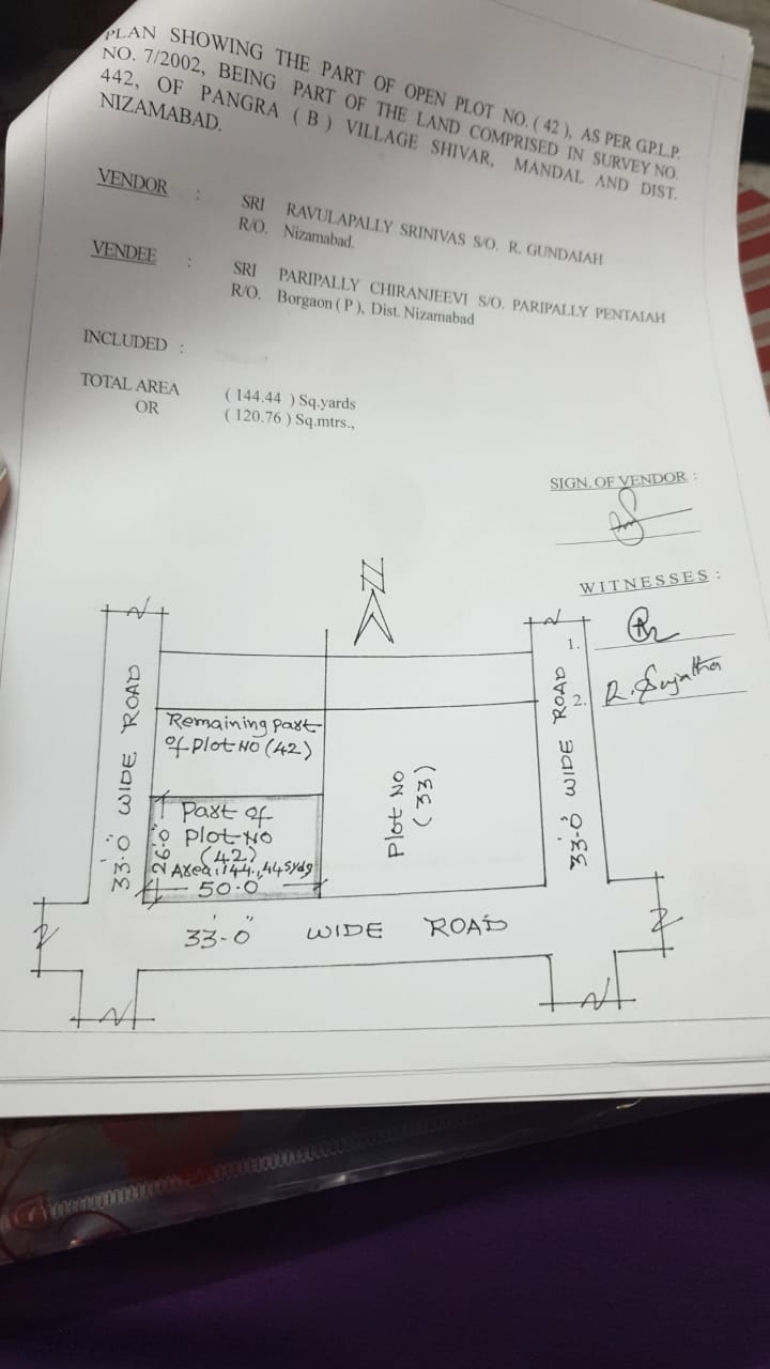 PLAN SHOWING THE PART OF OPEN PLOT NO. ( 42 ), AS PER G.P.L.P.
NO. 7/2002, BEING PART OF THE LAND COMPRISED IN SURVEY NO.
442, OF PANGRA ( B ) VILLAGE SHIVAR, MANDAL AND DIST.
NIZAMABAD.
VENDOR : SRI RAVULAPALLY SRINIVAS S/O. R. GUNDAIAH
R/O. Nizamabad.
VENDEE : SRI PARIPALLY CHIRANJEEVI S/O. PARIPALLY PENTAIAH
R/O. Borgaon ( P ), Dist. Nizamabad
INCLUDED :
TOTAL AREA ( 144.44 ) Sq.yards
OR ( 120.76 ) Sq.mtrs.,
SIGN. OF VENDOR :
WITNESSES :
1.
2. R. Sujatha
N
33'-0" WIDE ROAD
Remaining part
of Plot NO (42)
Part of
Plot NO
(42)
Area: 144.,44 Syds
26'-0"
50-0
Plot NO
(33)
33'-0" WIDE ROAD
33'-0" WIDE ROAD